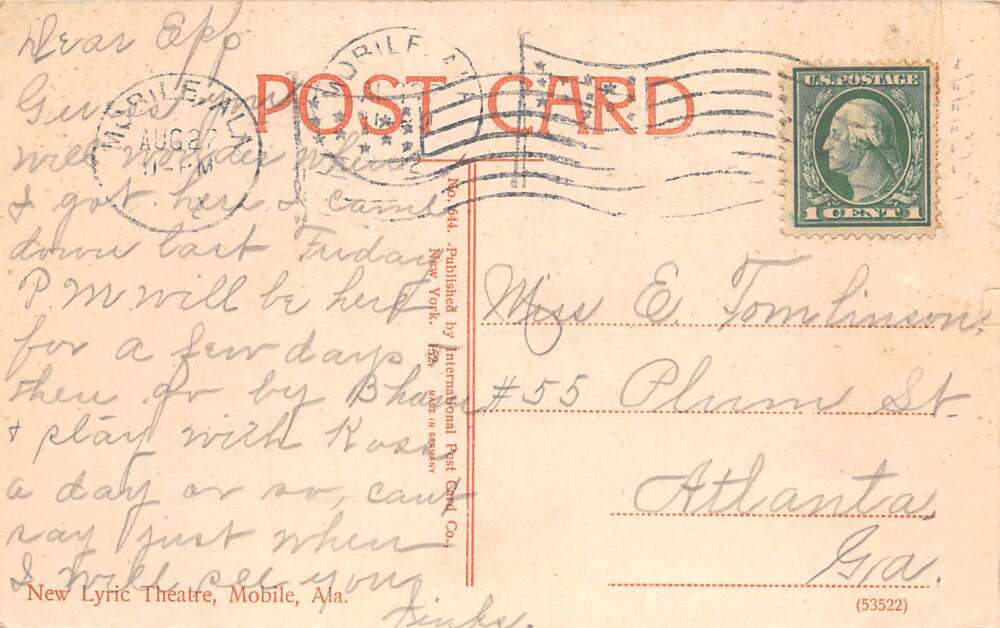 Dear Epp
Guess you
will wonder when
I got here I came
down last Friday
P.M will be here
for a few days
then go by Bham
& play with Ross
a day or so, cant
say just when
I will see you
POST CARD
MOBILE, ALA.
AUG 27
PM
MOBILE ALA
U.S. POSTAGE
1 CENT 1
Miss E. Tomlinson,
#55 Plum St
Atlanta
Ga.
No. 644. Published by International Post Card Co.,
New York. 152. MADE IN GERMANY
New Lyric Theatre, Mobile, Ala.
(53522)